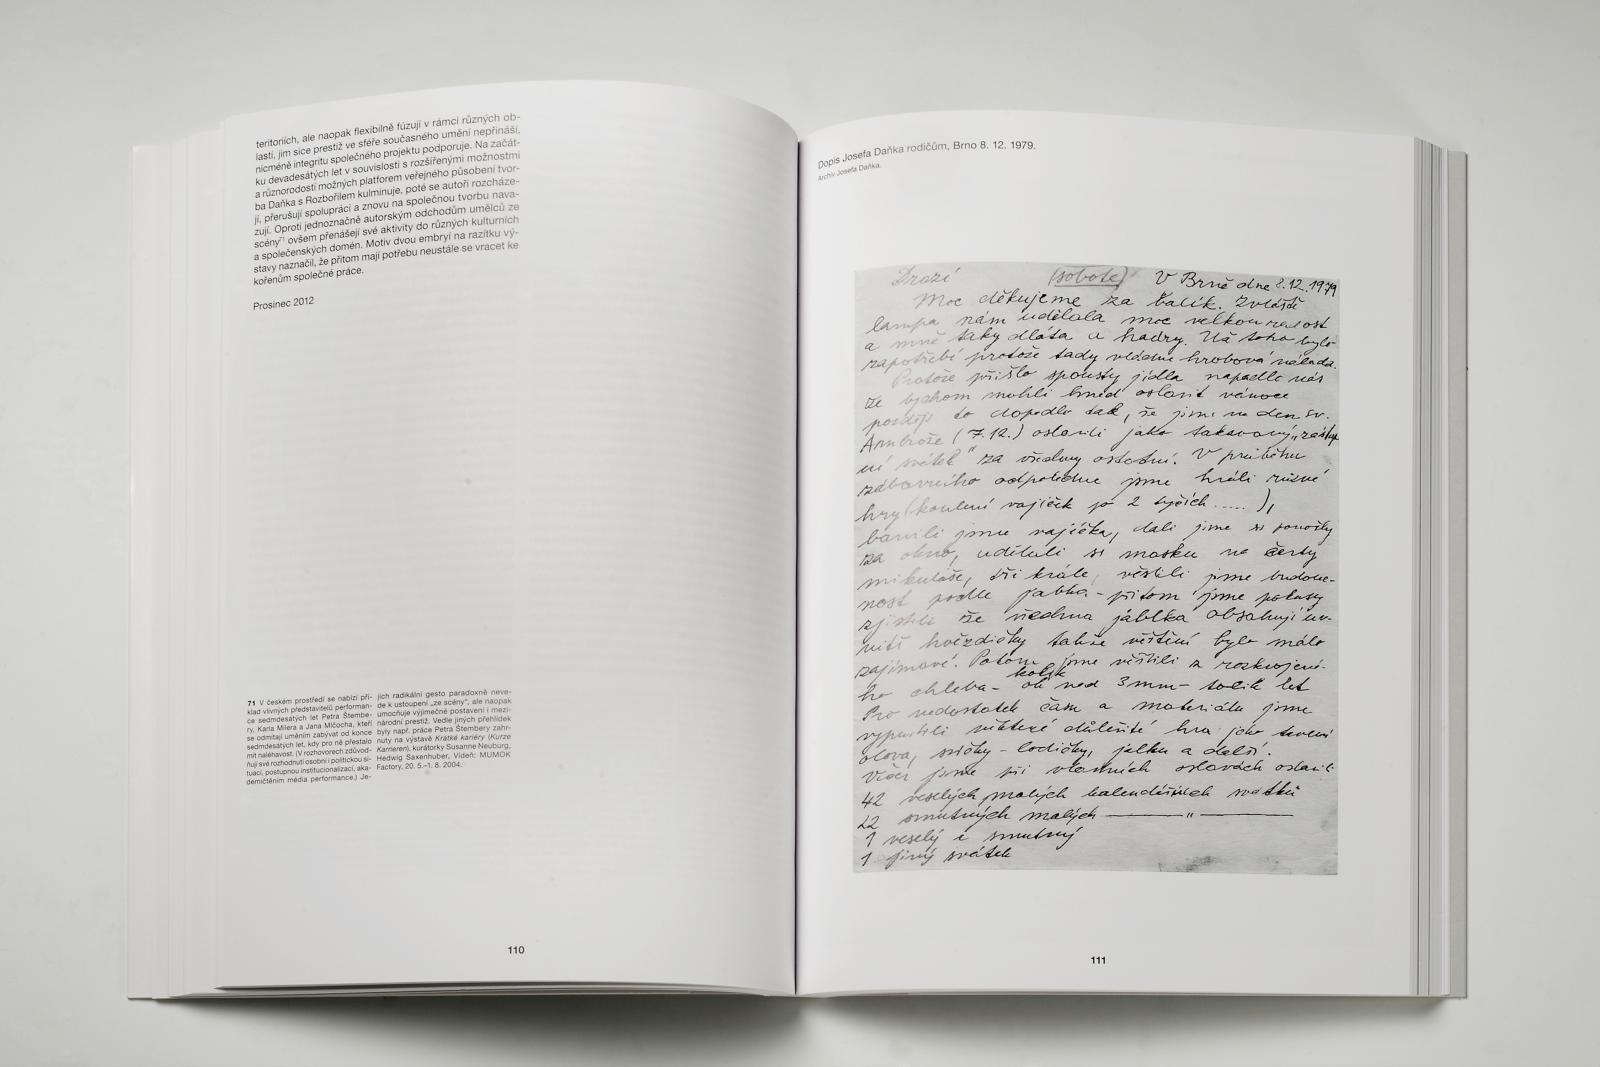 teritoriích, ale naopak flexibilně fúzují v rámci různých ob-
lastí, jim sice prestiž ve sféře současného umění nepřináší,
nicméně integritu společného projektu podporuje. Na začát-
ku devadesátých let v souvislosti s rozšířenými možnostmi
a různorodostí možných platforem veřejného působení tvor-
ba Daňka s Rozbořilem kulminuje, poté se autoři rozcháze-
jí, přerušují spolupráci a znovu na společnou tvorbu nava-
zují. Oproti jednoznačně autorským odchodům umělců ze
scény71 ovšem přenášejí své aktivity do různých kulturních
a společenských domén. Motiv dvou embryí na razítku vý-
stavy naznačil, že přitom mají potřebu neustále se vracet ke
kořenům společné práce.
Prosinec 2012
71 V českém prostředí se nabízí pří-
klad vlivných představitelů performan-
ce sedmdesátých let Petra Štembe-
ry, Karla Milera a Jana Mlčocha, kteří
se odmítají uměním zabývat od konce
sedmdesátých let, kdy pro ně přestalo
mít naléhavost. (V rozhovorech zdůvod-
ňují své rozhodnutí osobní i politickou si-
tuací, postupnou institucionalizací, aka-
demičtěním média performance.) Je-
jich radikální gesto paradoxně neve-
de k ustoupení „ze scény“, ale naopak
umocňuje výjimečné postavení i mezi-
národní prestiž. Vedle jiných přehlídek
byly např. práce Petra Štembery zahr-
nuty na výstavě Krátké kariéry (Kurze
Karrieren), kurátorky Susanne Neuburg,
Hedwig Saxenhuber, Vídeň: MUMOK
Factory, 20. 5.–1. 8. 2004.
110
Dopis Josefa Daňka rodičům, Brno 8. 12. 1979.
Archiv Josefa Daňka.
Drazí (sobota) V Brně dne 8.12.1979
Moc děkujeme za balík. Zvláště
lampa nám udělala moc velkou radost
a mně taky dláta a hadry. Už toho bylo
zapotřebí protože tady vládne hrobová nálada.
Protože přišlo spousty jídla napadlo nás
že bychom mohli hned oslavit vánoce
později to dopadlo tak, že jsme na den sv.
Ambrože (7.12.) oslavili jako takzvaný
ní svátek" za všechny ostatní. V průběhu
zábavního odpoledne jsme hráli různé
hry (koulení vajíček po 2 tyčích .....),
barvili jsme vajíčka, dali jsme si ponožky
za okno, udělali si masku na čerty
mikuláše, tři krále, věštili jsme budouc-
nost podle jablka - přitom jsme pokusy
zjistili že všechna jáblka obsahují uv-
nitř hvězdičky takže věštění bylo málo
zajímavé. Potom jsme věštili z rozkrojené-
ho chleba - kolik ok nad 3mm - tolik let
Pro nedostatek času a materiálu jsme
vypustili některé důležité hra jako tavení
olova, svíčky - lodičky, jelku a další.
Včer jsme při vlastních oslavách oslavili
42 veselých malých kalendářních svátků
22 smutných malých —— " ——
1 veselý i smutný
1 jiný svátek
111